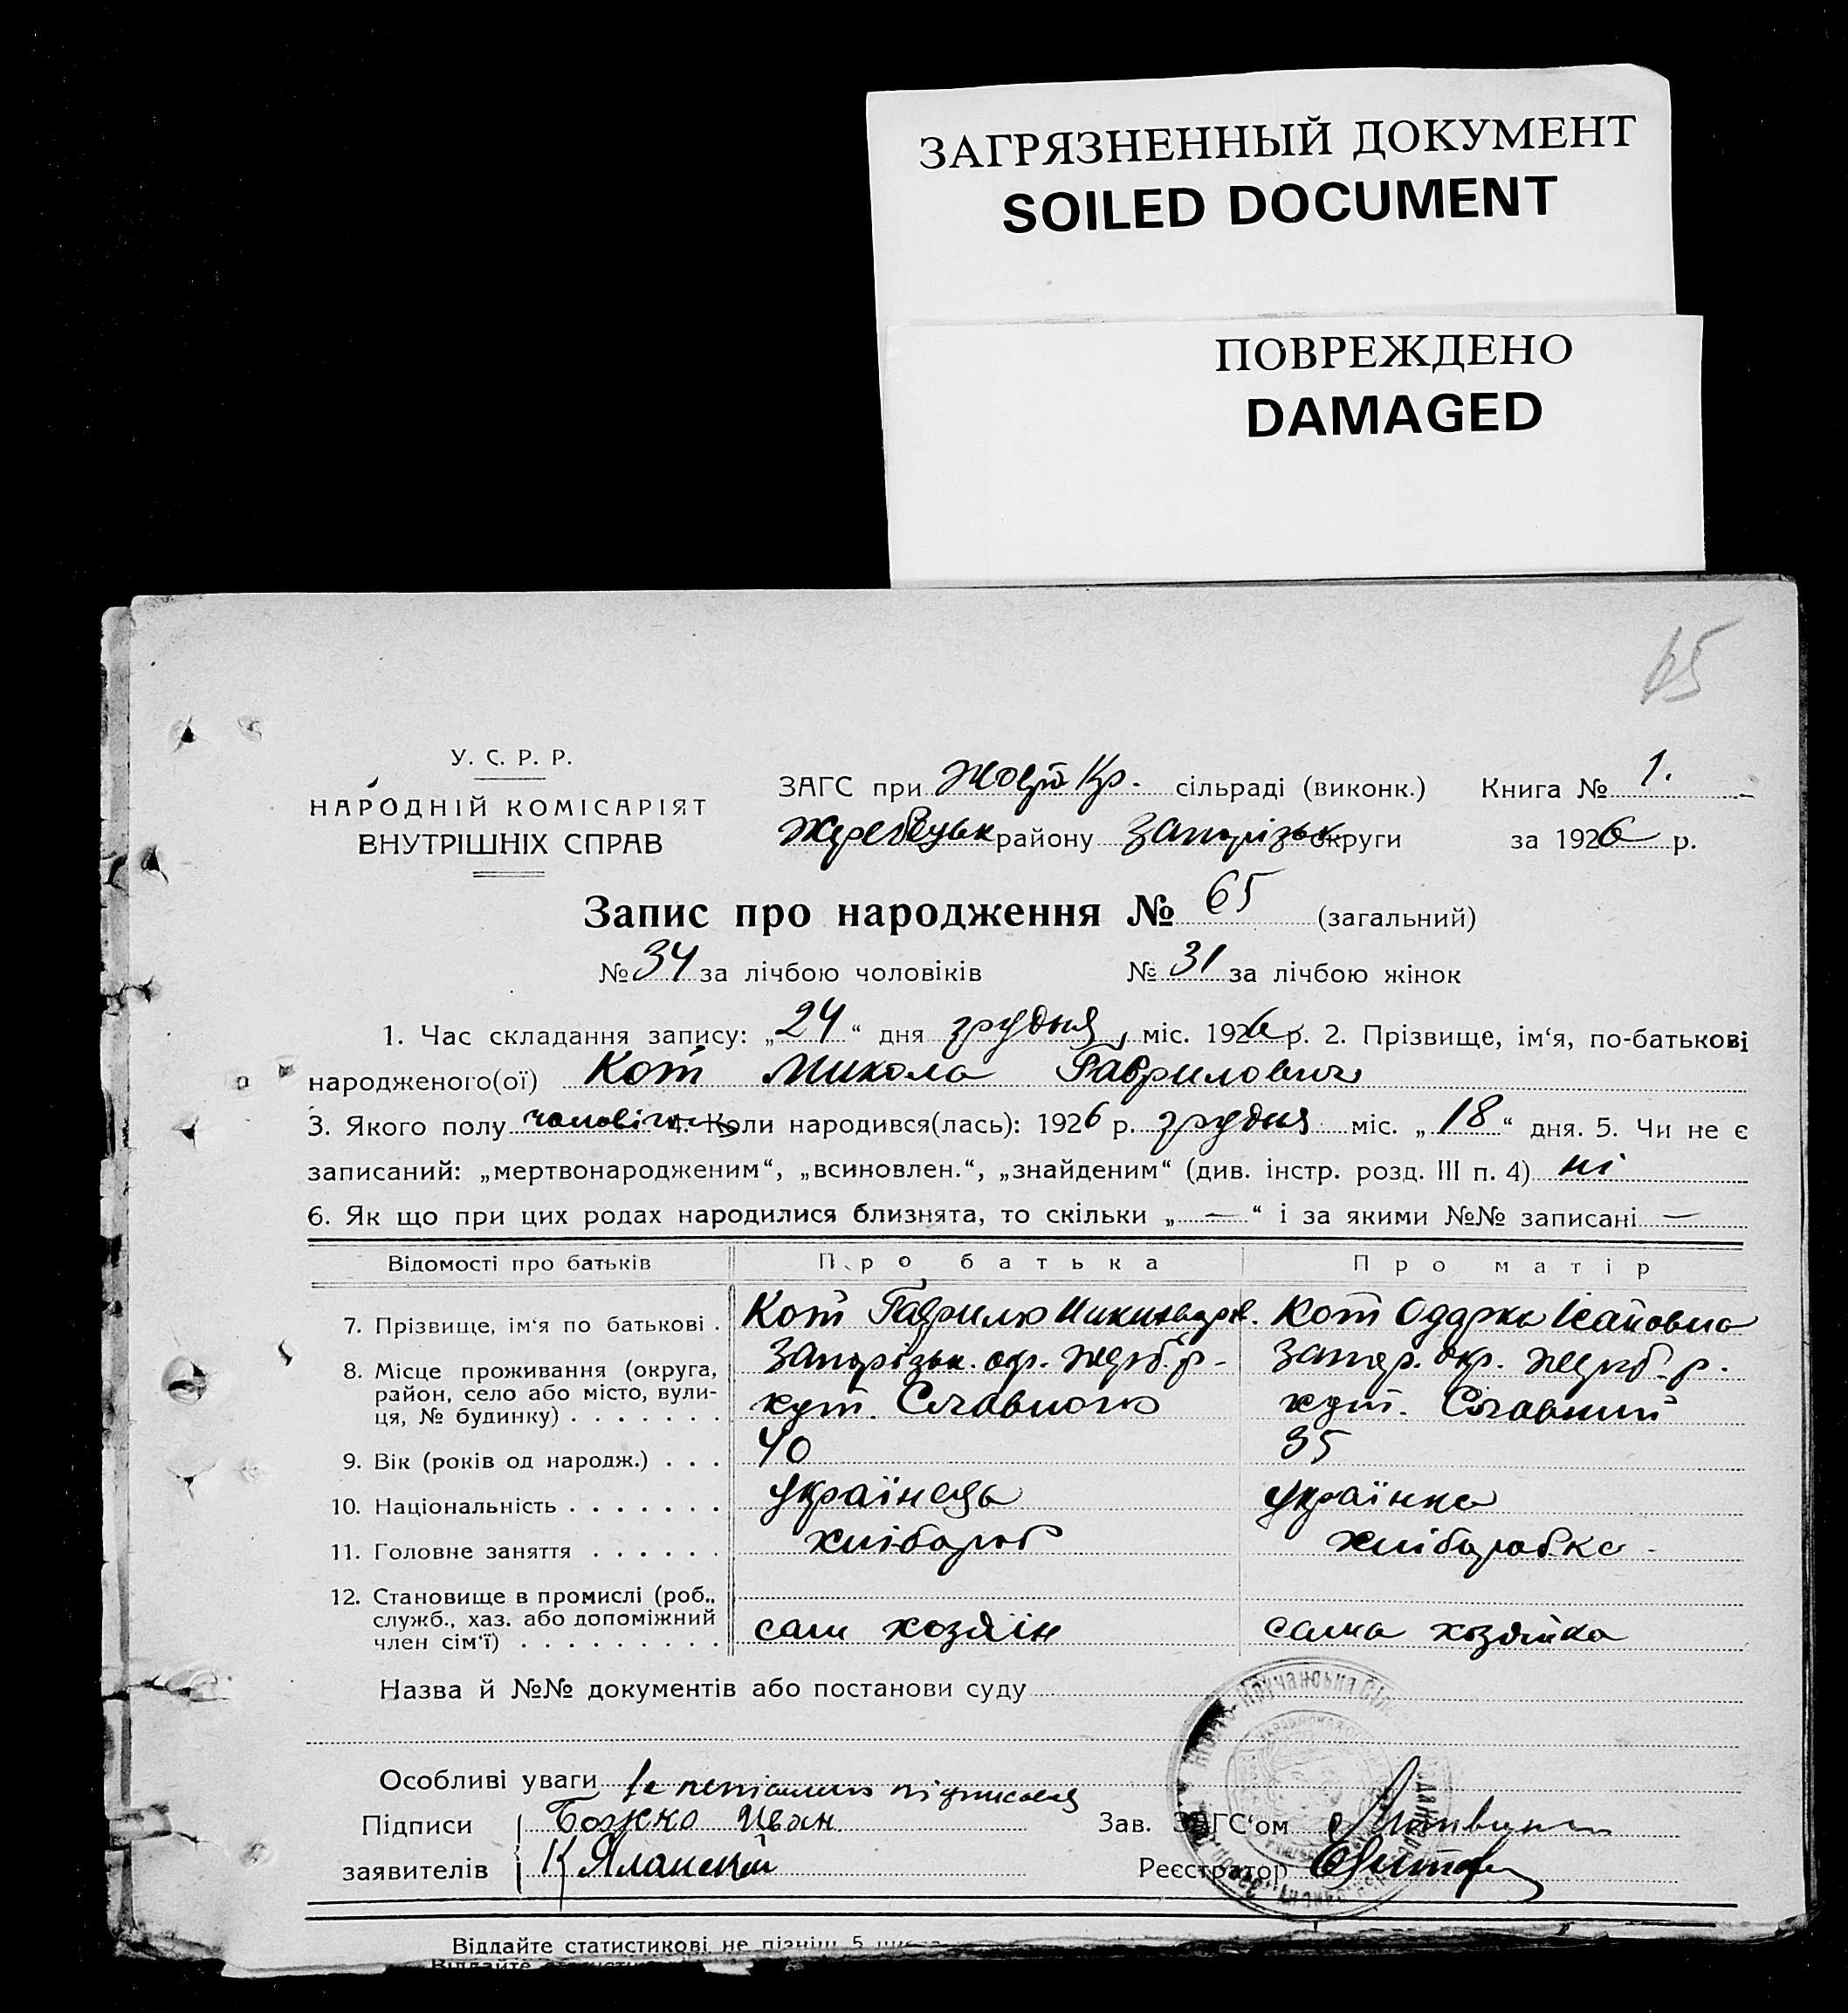 ЗАГРЯЗНЕННЫЙ ДОКУМЕНТ
SOILED DOCUMENT
ПОВРЕЖДЕНО
DAMAGED
У. С. Р. Р.
НАРОДНІЙ КОМІСАРІЯТ
ВНУТРІШНІХ СПРАВ
ЗАГС при Жовто Кр. сільраді (виконк.) Книга № 1.
Жеребецьк району Запорізьк округи за 1926 р.
Запис про народження № 65 (загальний)
№ 34 за лічбою чоловіків № 31 за лічбою жінок
1. Час складання запису: „24“ дня грудня міс. 1926 р. 2. Прізвище, ім‘я, по-батькові
народженого(ої) Кот Микола Гаврилович
3. Якого полу чоловічого 4. Коли народився(лась): 1926 р. грудня міс. „18“ дня. 5. Чи не є
записаний: „мертвонародженим“, „всиновлен.“, „знайденим“ (див. інстр. розд. III п. 4) ні
6. Як що при цих родах народилися близнята, то скільки „—“ і за якими №№ записані —
Відомості про батьків Про батька Про матір
7. Прізвище, ім‘я по батькові . Кот Гаврило Кот Одарка Ісаївна
8. Місце проживання (округа, Запорізьк. окр. Жереб. р. Запор. окр. Жереб. р.
район, село або місто, вули-
ця, № будинку) . . . . . . . хут. хут.
9. Вік (років од народж.) . . . 40 35
10. Національність . . . . . . . українець українка
11. Головне заняття . . . . . . хлібороб хліборобка
12. Становище в промислі (роб.,
служб., хаз. або допоміжний
член сім‘ї) . . . . . . . . . сам хозяїн сама хозяйка
Назва й №№ документів або постанови суду
Особливі уваги підписався
Підписи Божко Иван Зав. ЗАГС‘ом
заявителів К Яланский Реєстратор
Віддайте статистикові не пізніш 5